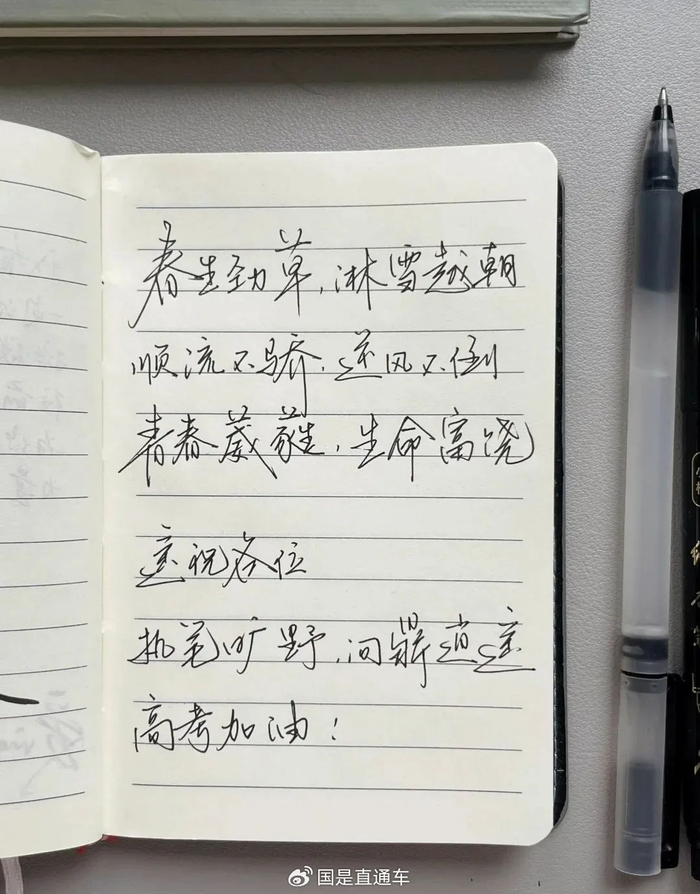 春生劲草，淋雪越朝
顺流不骄，逆风不倒
青春葳蕤，生命富饶
遥祝各位
执笔旷野，问辩逍遥
高考加油！
国是直通车